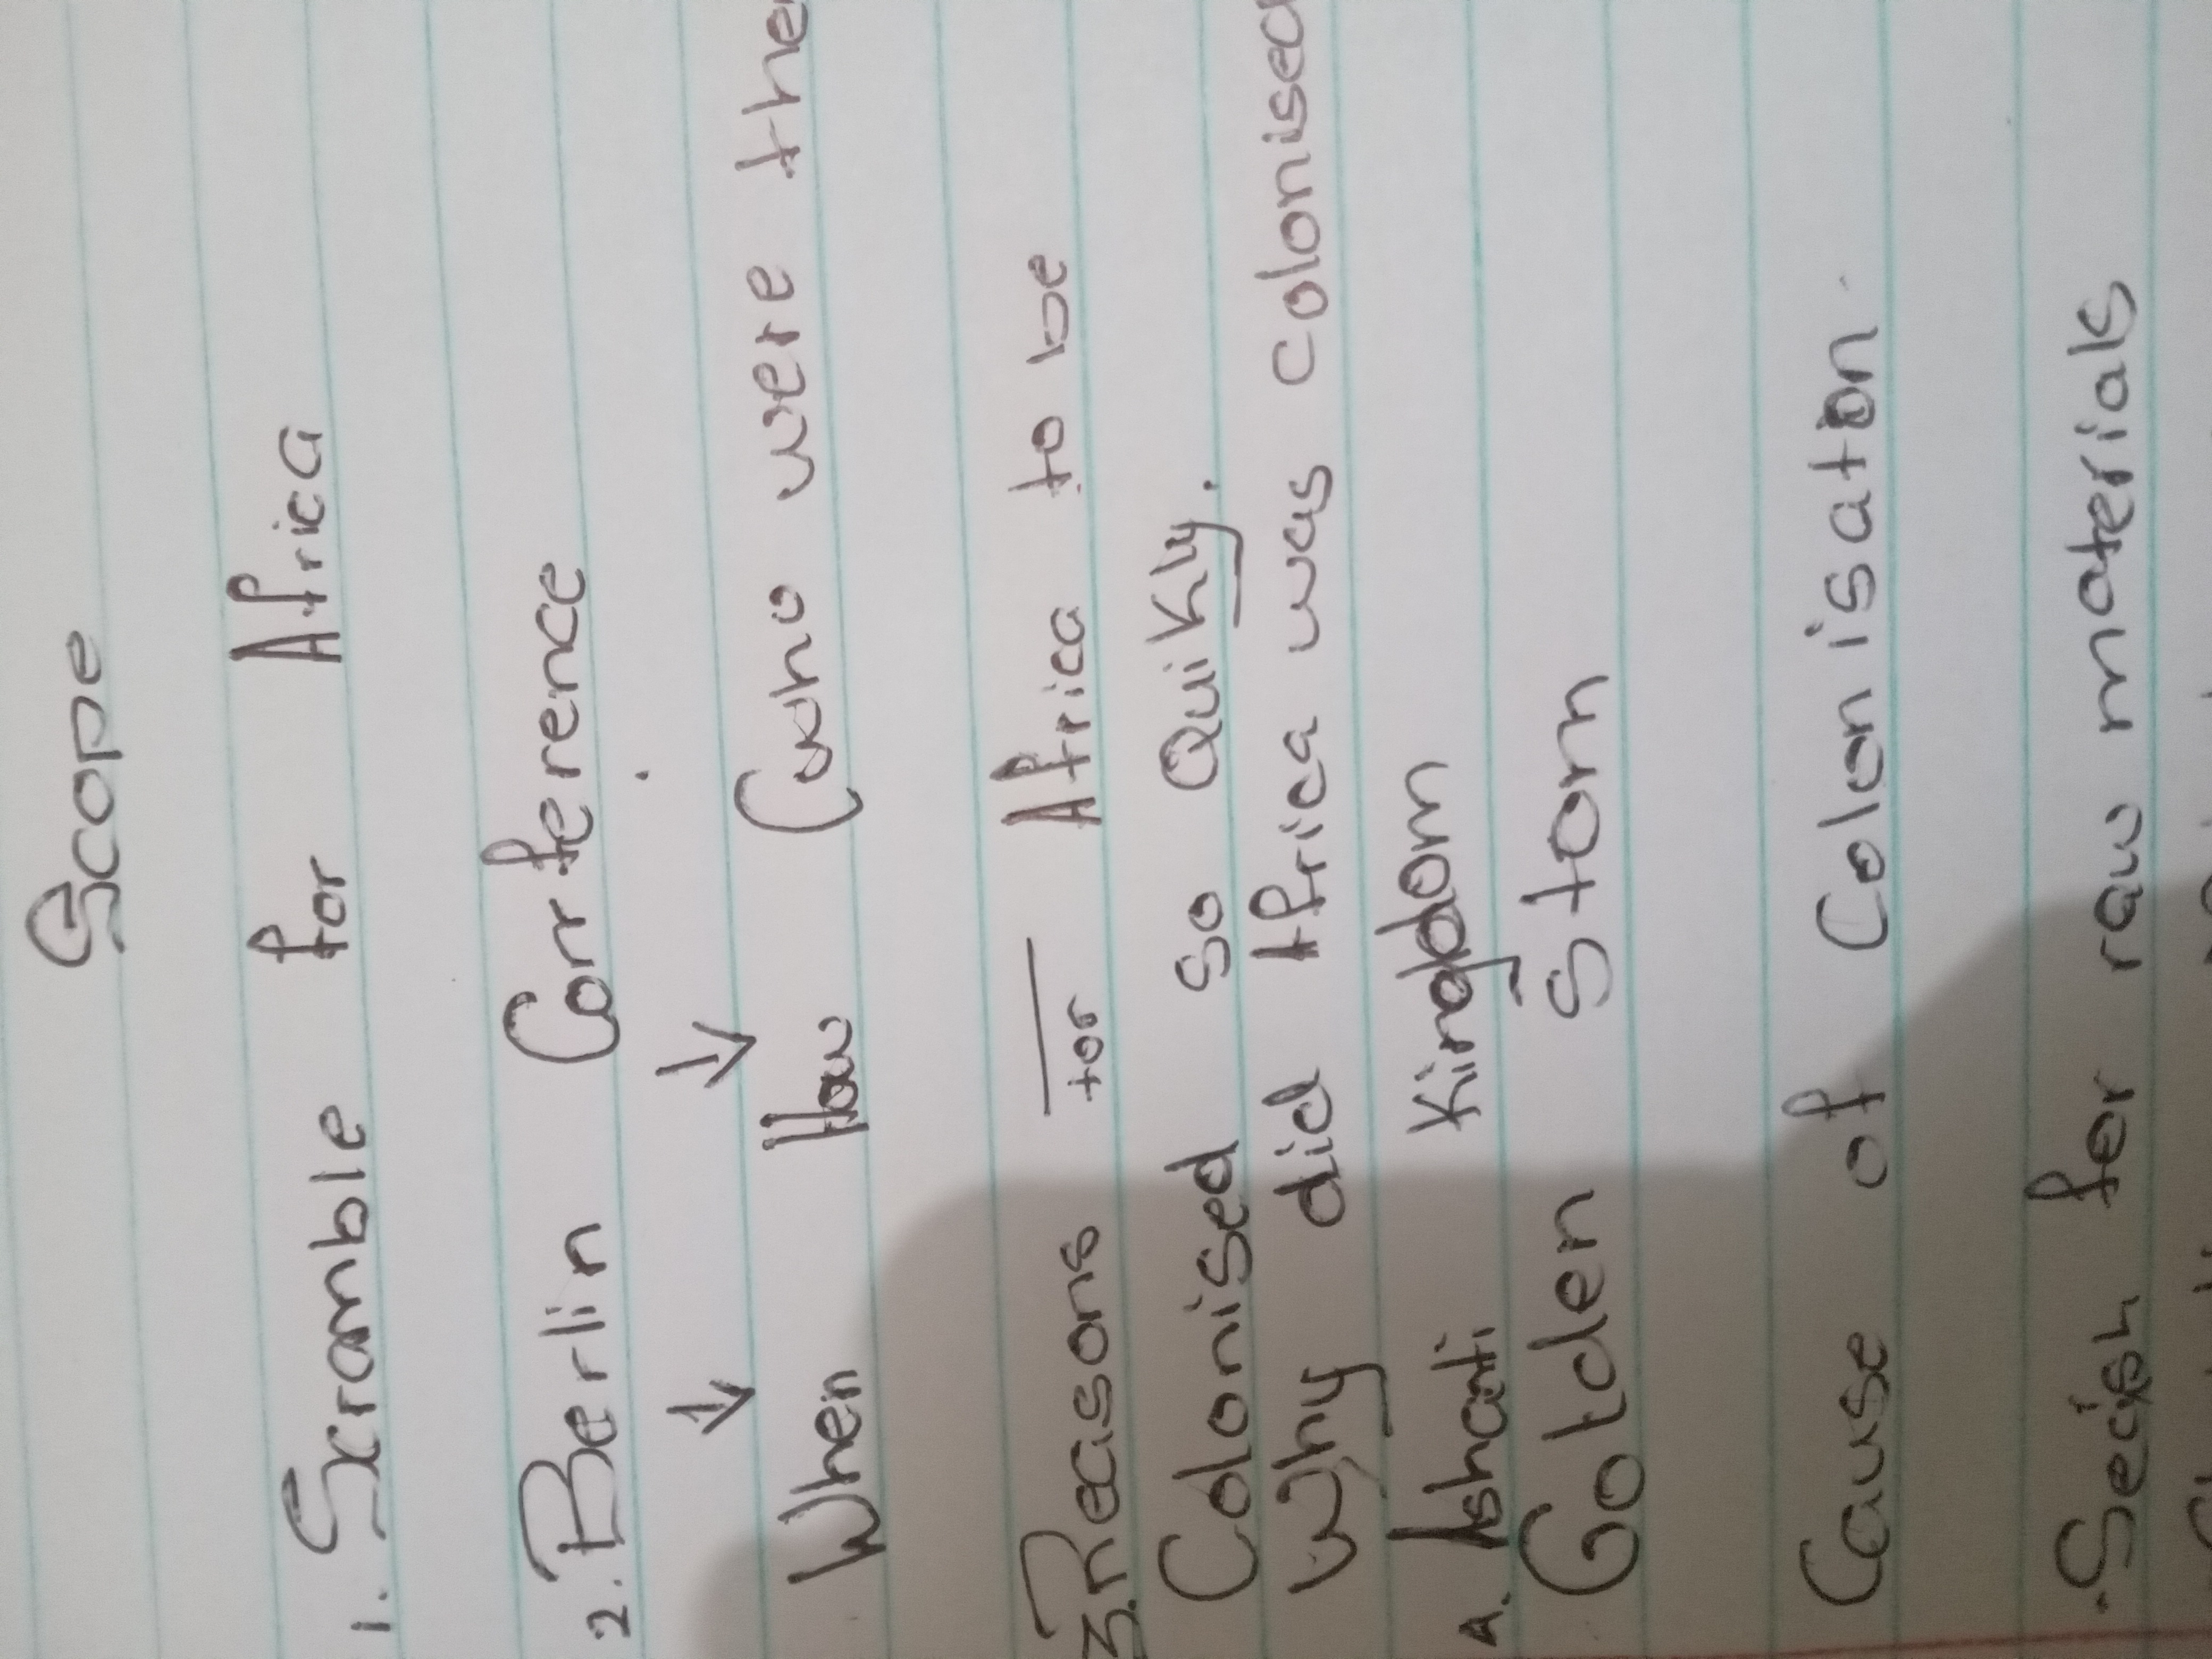 Scope
1. Scramble for Africa
2. Berlin Conference
↓ ↓
When How (who were the
3. Reasons for Africa to be
Colonised so Quikly.
Why did Africa was colonised
4. Ashanti Kingdom
Golden Storn
Cause of Colonisaton
• for raw materials